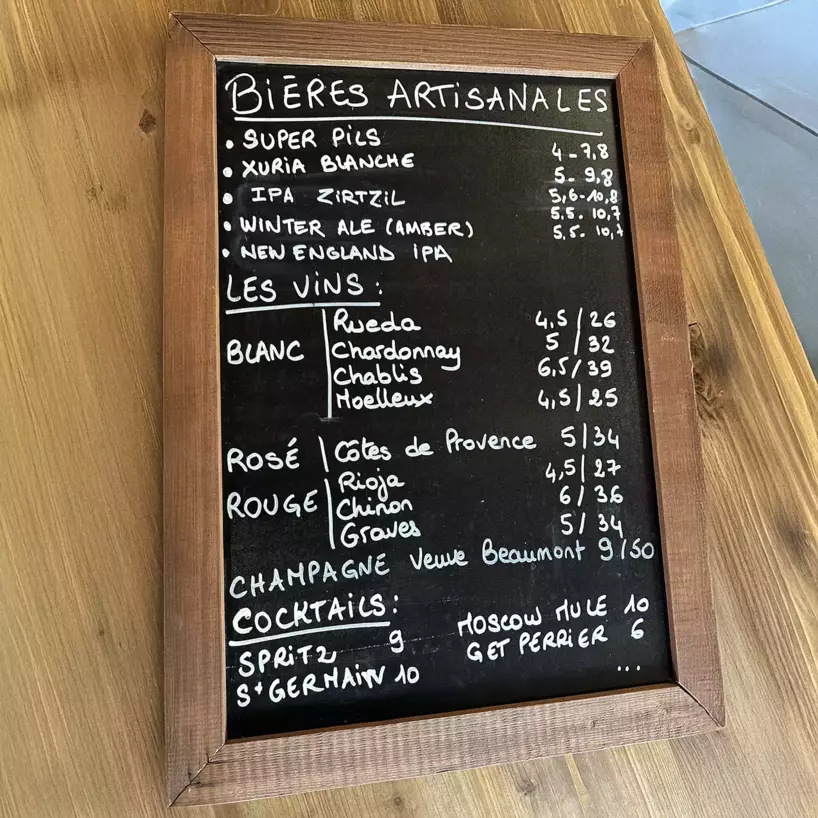 BIÈRES ARTISANALES
• SUPER PILS 4-7,8
• XURIA BLANCHE 5-9,8
• IPA ZIRTZIL 5,6-10,8
• WINTER ALE (AMBER) 5,5-10,7
• NEW ENGLAND IPA 5,5-10,7
LES VINS:
BLANC
Rueda 4,5/26
Chardonnay 5/32
Chablis 6,5/39
Moelleux 4,5/25
ROSÉ
Côtes de Provence 5/34
ROUGE
Rioja 4,5/27
Chinon 6/36
Graves 5/34
CHAMPAGNE Veuve Beaumont 9/50
COCKTAILS:
SPRITZ 9
St GERMAIN 10
MOSCOW MULE 10
GET PERRIER 6
...